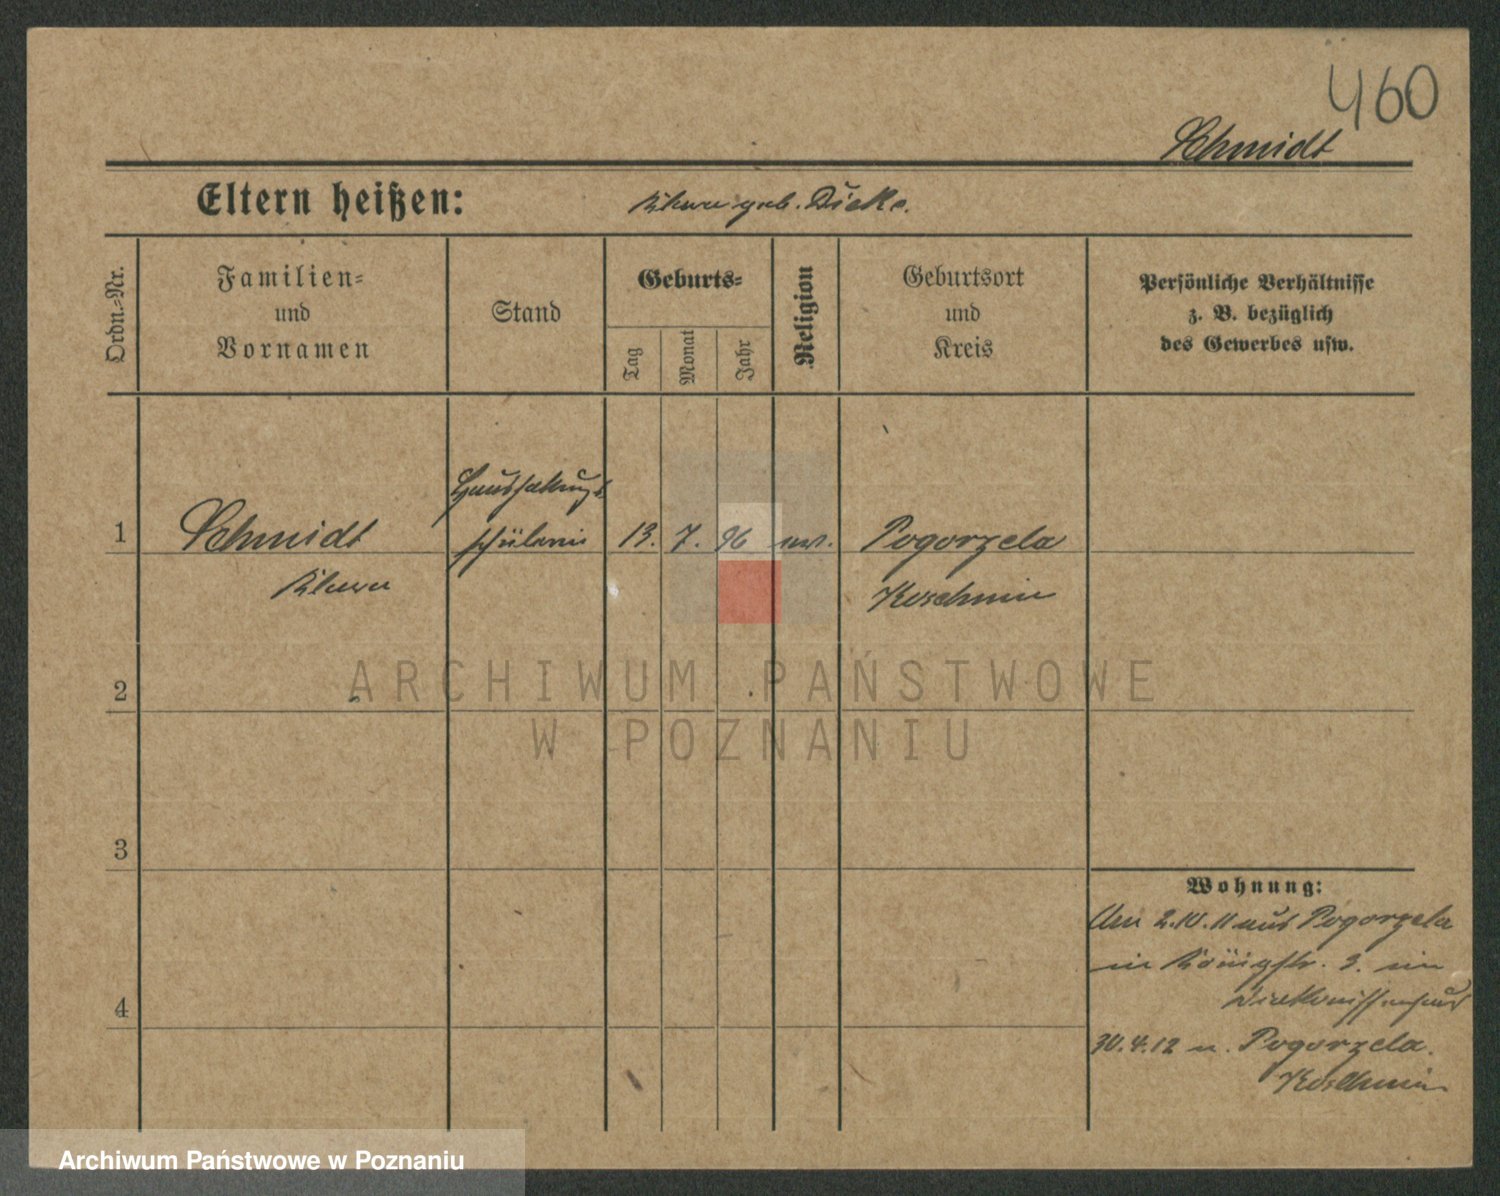 460
Schmidt
Eltern heißen: geb. Dicke.
Ordn.-Nr.
Familien-
und
Vornamen
Stand
Geburts-
Tag
Monat
Jahr
Religion
Geburtsort
und
Kreis
Persönliche Verhältnisse
z. B. bezüglich
des Gewerbes usw.
Haushaltungs
1 Schmidt schülerin 13. 7. 96 Pogorzela
Koschmin
ARCHIWUM PAŃSTWOWE
W POZNANIU
2
3
Wohnung:
Am 2.10.11 aus Pogorzela
in Königstr. 3. im
Diakonissenhaus
4
30.4.12 n. Pogorzela.
Koschmin
Archiwum Państwowe w Poznaniu